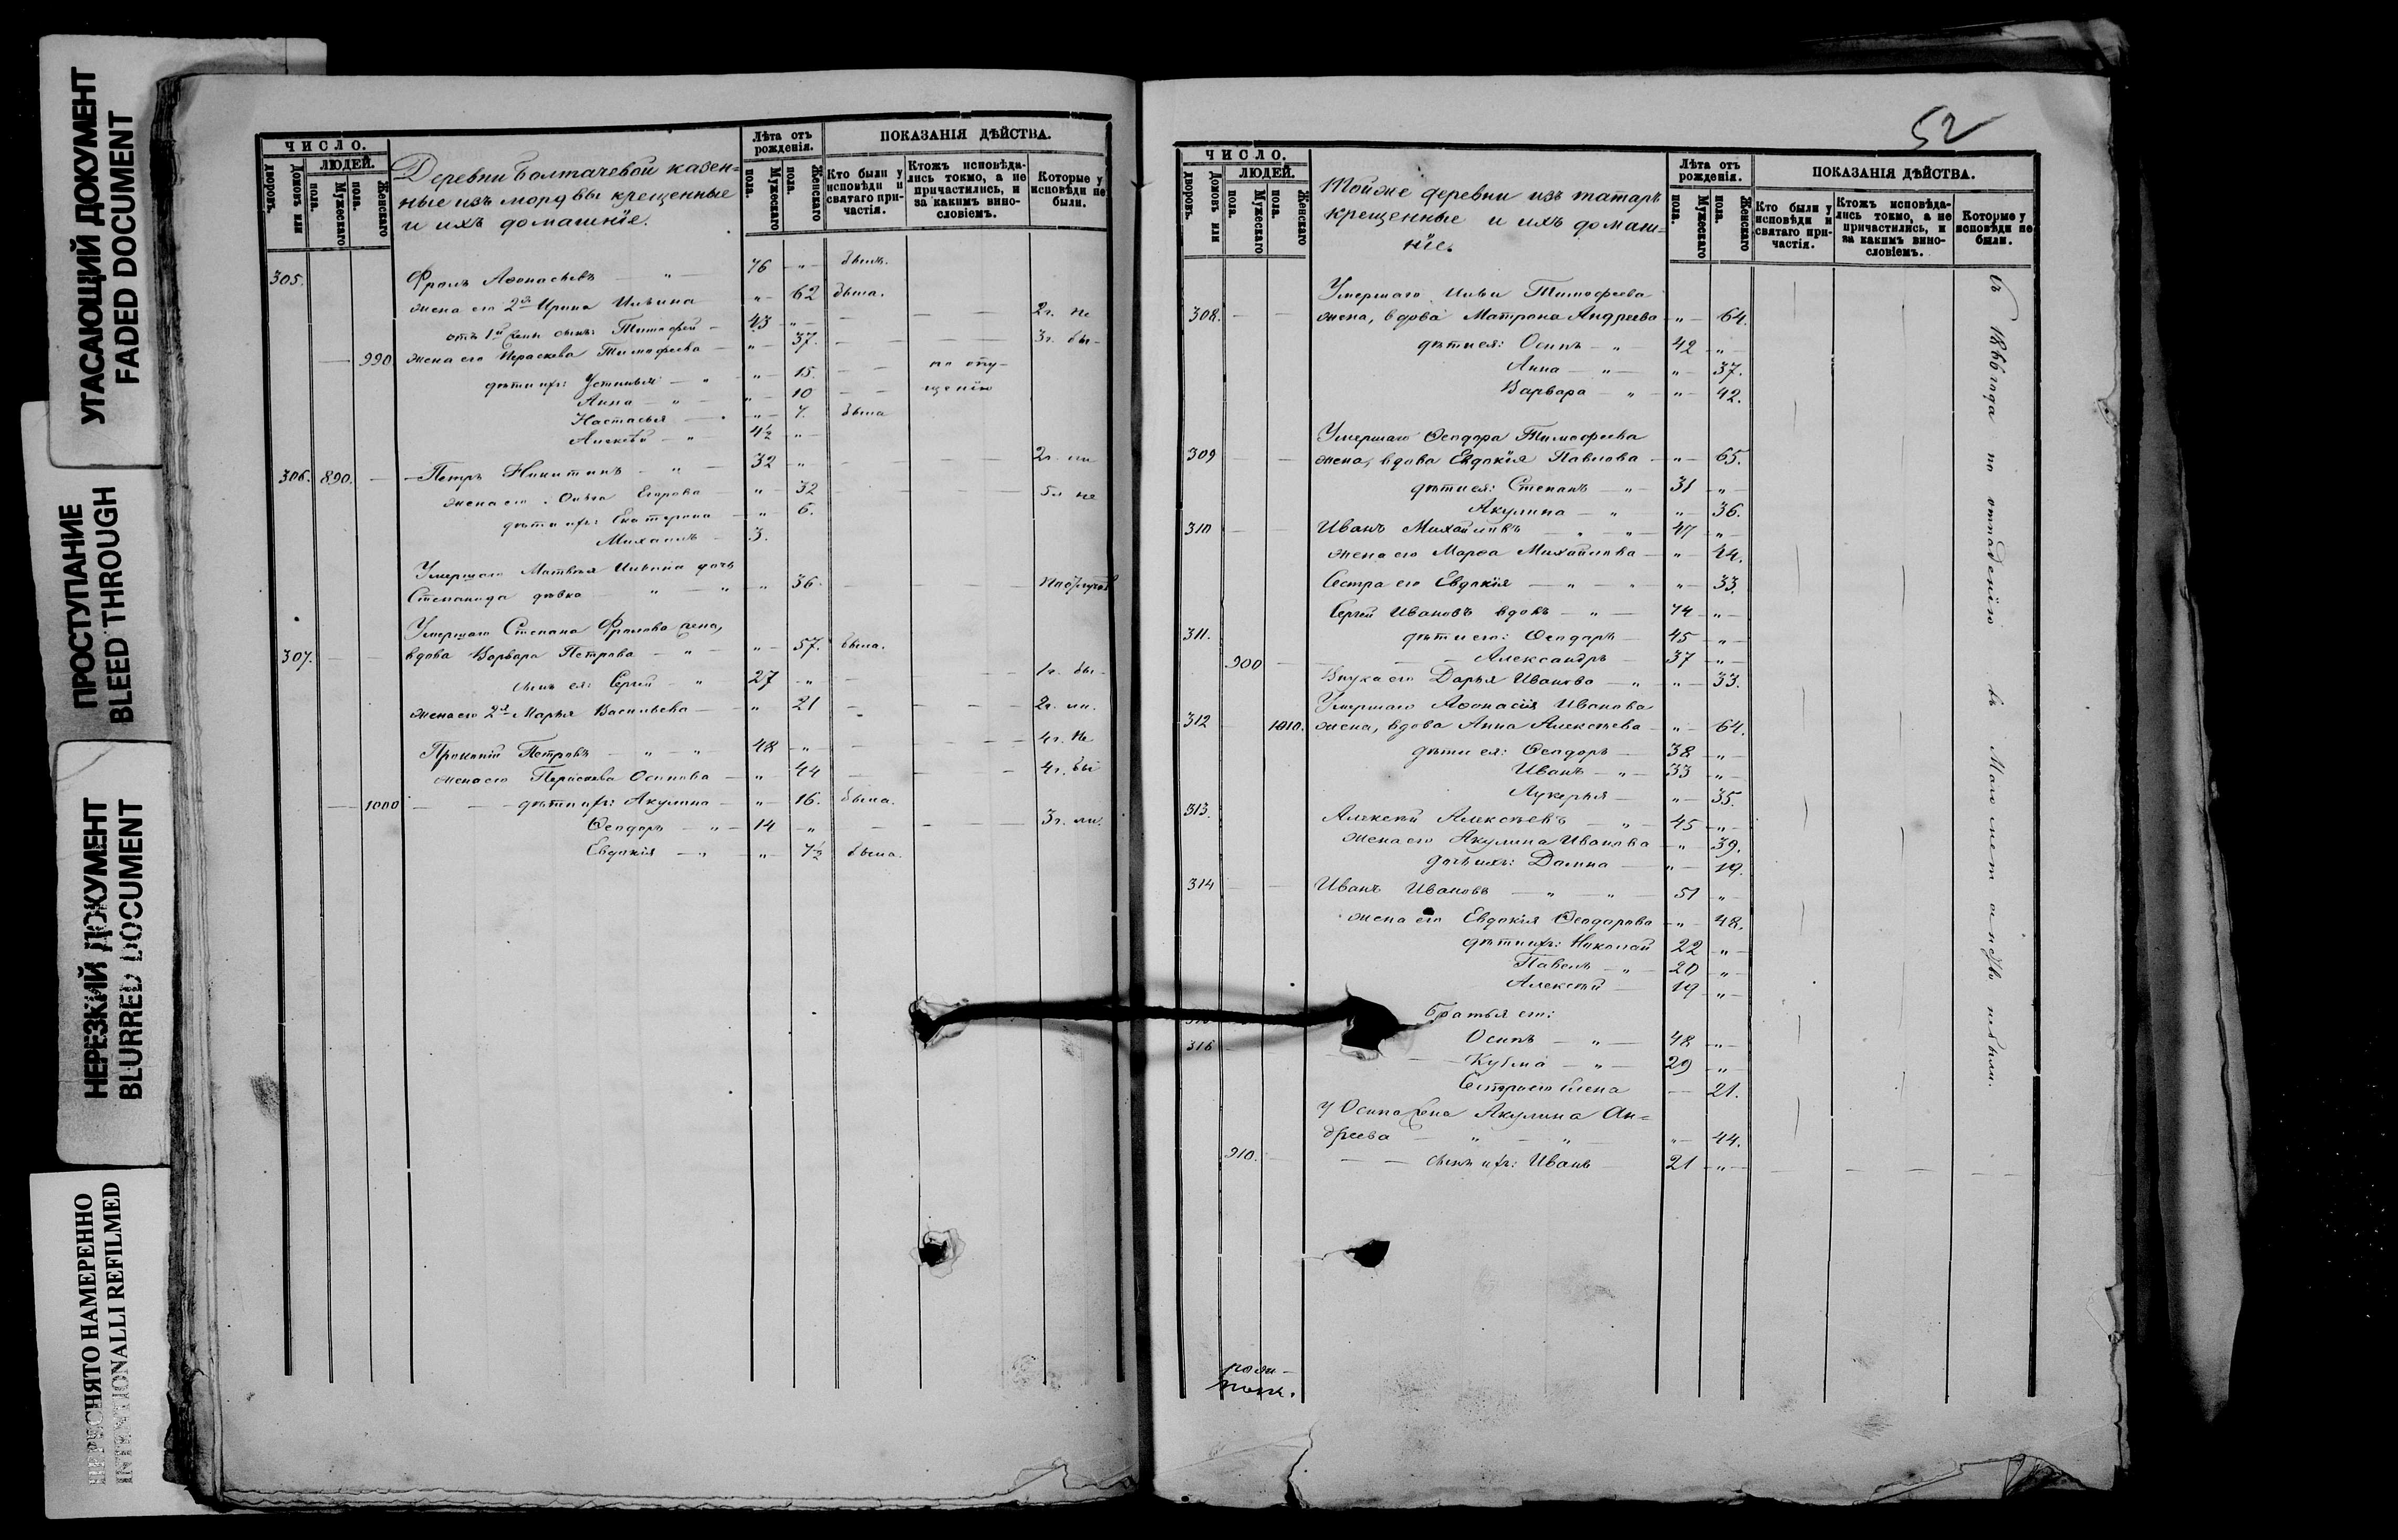 УГАСАЮЩИЙ ДОКУМЕНТ
FADED DOCUMENT
ПРОСТУПАНИЕ
BLEED THROUGH
НЕРЕЗКИЙ ДОКУМЕНТ
BLURRED DOCUMENT
ПЕРЕСНЯТО НАМЕРЕННО
INTENTIONALLI REFILMED
ЧИСЛО.
ЛЮДЕЙ.
Домовъ или дворовъ.
Мужескаго пола.
Женскаго пола.
Деревни Болтачевой казен=
ные изъ мордвы крещенные
и ихъ домашніе.
Лѣта отъ рожденія.
Мужескаго пола.
Женскаго пола.
ПОКАЗАНІЯ ДѢЙСТВА.
Кто были у исповѣди и святаго причастія.
Ктожъ исповѣдались токмо, а не причастились, и за какимъ винословіемъ.
Которые у исповѣди не были.
305. Фролъ Аѳонасьевъ — " — 76 — " — былъ.
жена его 2я Ирина Ильина " — 62 была.
отъ 1й жены сынъ: Тимофей — 43 — " — — — 2г. не
990 жена его Параскева Тимофеева — " — 37. — — 3г. бы-
дѣти ихъ: Устинья — " — " — 15. — — по опу-
Анна — " — " — 10 — — щенію
Настасья — " — 7. была
Алексѣй — " — 4½ — " —
306. 890. — Петръ Никитинъ — " — 32 — " — — — 2г. ли
жена его Ольга Егорова — " — 32 — — 5л не
дѣти ихъ: Екатерина — " — 6.
Михаилъ — 3.
Умершаго Матвѣя Ильина дочь
Степанида дѣвка — " — " — " — 36. — —
Умершаго Степана Фролова жена,
307. — — вдова Варвара Петрова — " — " — 57. была.
сынъ ея: Сергей — " — 27 — " — — — 1г. бы-
жена его 2я Марья Васильева — " — 21 — — 2г. ли.
Прокопій Петровъ — " — " 48 — " — — — 4г. не
жена его Параскева Осипова — " — 44 — — 4г. бы
1000 — — дѣти ихъ: Акулина — " — 16. была.
Ѳеодоръ — " — 14 — " — — — 3г. ли.
Евдокія — " — " — 7½ была.
52
ЧИСЛО.
ЛЮДЕЙ.
Домовъ или дворовъ.
Мужескаго пола.
Женскаго пола.
Той же деревни изъ татаръ
крещенные и ихъ домаш=
ніе.
Лѣта отъ рожденія.
Мужескаго пола.
Женскаго пола.
ПОКАЗАНІЯ ДѢЙСТВА.
Кто были у исповѣди и святаго причастія.
Ктожъ исповѣдались токмо, а не причастились, и за какимъ винословіемъ.
Которые у исповѣди не были.
Умершаго Ильи Тимофеева
308. — — жена, вдова Матрона Андреева — " — 64.
дѣти ея: Осипъ — " — 42 — " —
Анна — " — " — 37.
Варвара — " — " — 42.
Умершаго Ѳеодора Тимофеева
309 — — жена, вдова Евдокія Павлова — " — 65.
дѣти ея: Степанъ — " — 31 — " —
Акулина — " — " — 36.
310 — — Иванъ Михайловъ — " — " — 47 — " —
жена его Марѳа Михайлова — " — 44.
Сестра его Евдокія — " — " " — 33.
Сергей Ивановъ вдовъ — " — 74 — " —
311. дѣти его: Ѳеодоръ — 45 — " —
900 — — Александръ 37 — " —
Внука его Дарья Иванова — " — " — 33.
Умершаго Аѳонасія Иванова
312 — 1010. жена, вдова Анна Алексѣева — " — 64.
дѣти ея: Ѳеодоръ — 38 — " —
Иванъ — " — 33 — " —
Лукерья — " — 35.
313. Алексѣй Алексѣевъ — " — 45 — " —
жена его Акулина Иванова — " — 39.
дочь ихъ: Домна — " — 19.
314 — — Иванъ Ивановъ — " — " — 51 — " —
жена его Евдокія Ѳеодорова — " — 48.
дѣти ихъ: Николай 22 — " —
Павелъ — " — 20 — " —
Алексѣй — 19 — " —
Братья его:
Осипъ — " — 48 — " —
316 — — Кузма — " — 29 — " —
Сестра его Елена — 21.
У Осипа жена Акулина Ан=
дреева — " — " — " — 44.
910. — — сынъ ихъ: Иванъ — 21 — " —
Съ года по отпаденію въ Магомет не были.